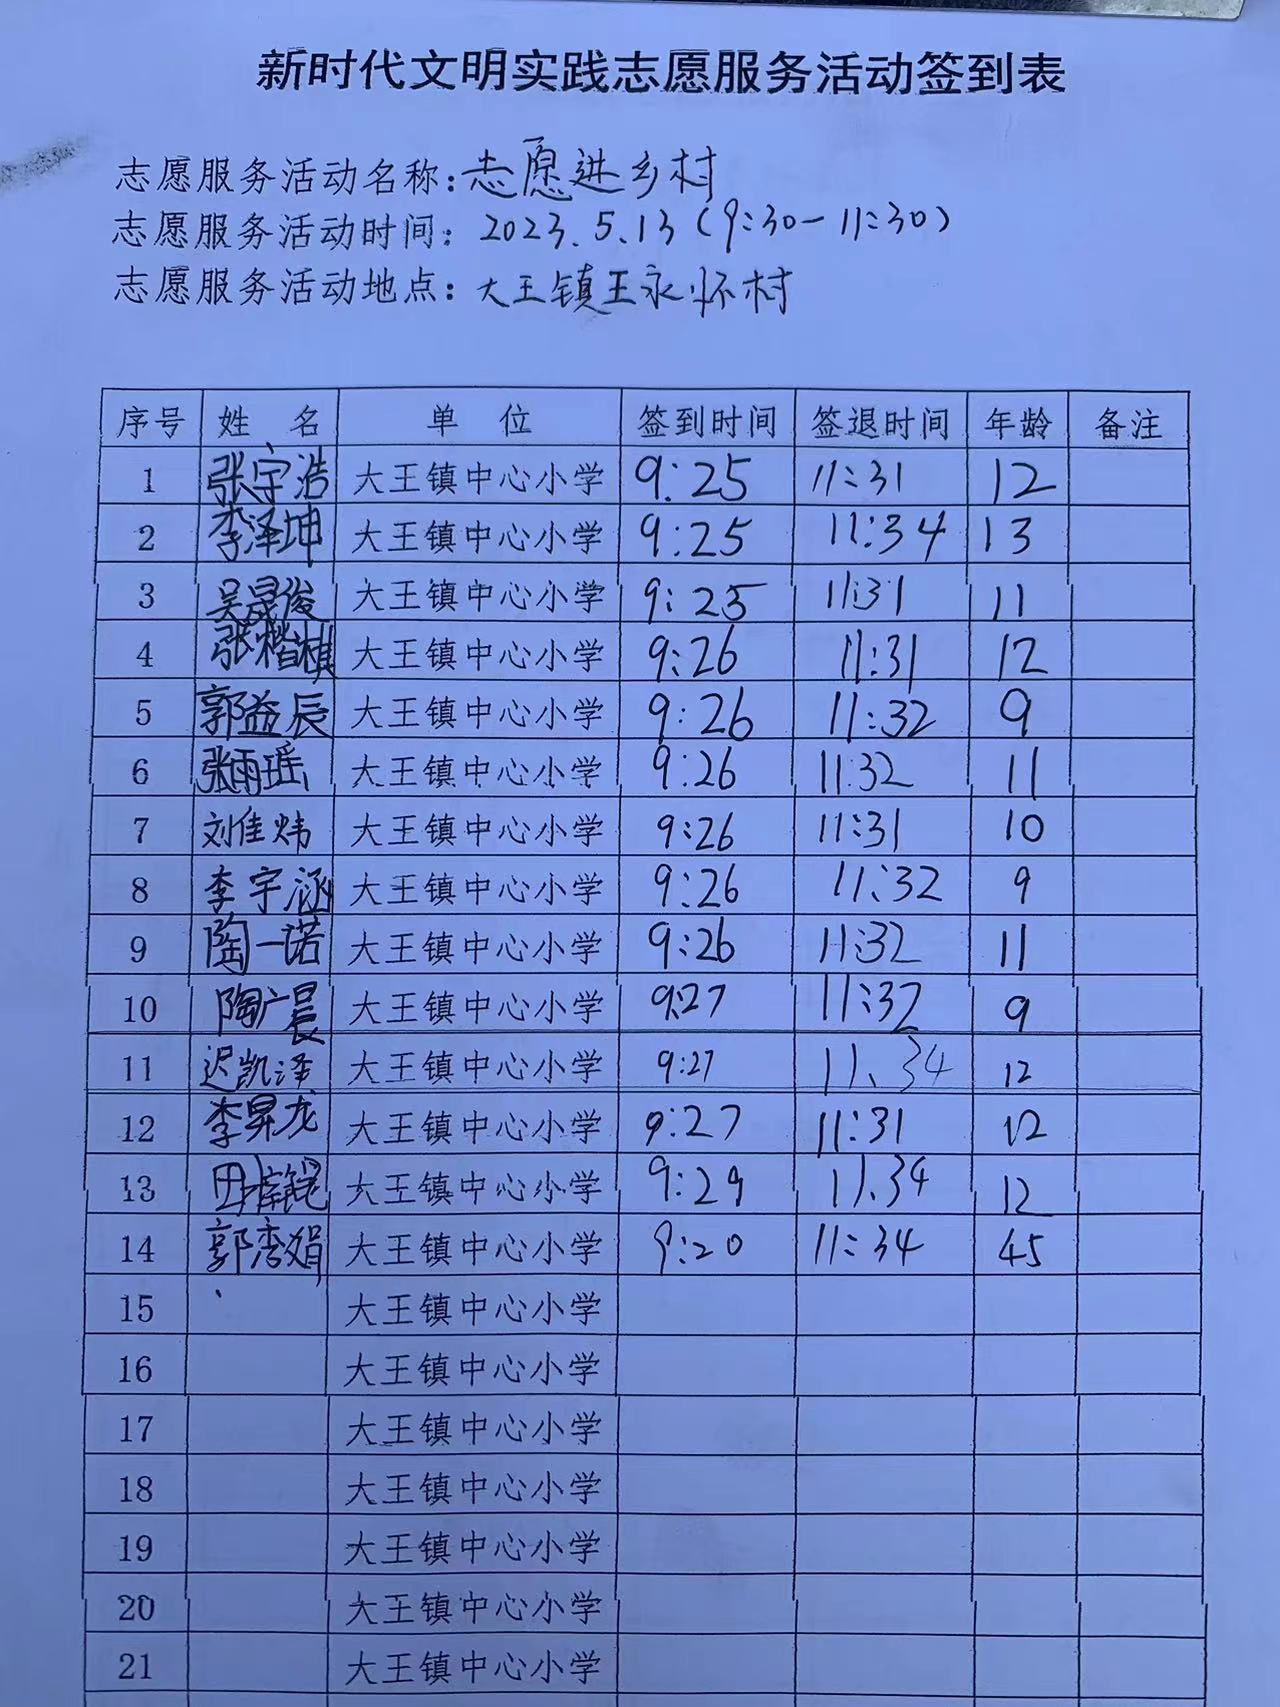 新时代文明实践志愿服务活动签到表
志愿服务活动名称:志愿进乡村
志愿服务活动时间: 2023.5.13(9:30-11:30)
志愿服务活动地点: 大王镇王永怀村
序号 姓名 单位 签到时间 签退时间 年龄 备注
1 张宇浩 大王镇中心小学 9:25 11:31 12
2 李泽坤 大王镇中心小学 9:25 11:34 13
3 吴晟俊 大王镇中心小学 9:25 11:31 11
4 张楷棋 大王镇中心小学 9:26 11:31 12
5 郭益辰 大王镇中心小学 9:26 11:32 9
6 张雨瑶 大王镇中心小学 9:26 11:32 11
7 刘佳炜 大王镇中心小学 9:26 11:31 10
8 李宇涵 大王镇中心小学 9:26 11:32 9
9 陶一诺 大王镇中心小学 9:26 11:32 11
10 陶广晨 大王镇中心小学 9:27 11:32 9
11 迟凯泽 大王镇中心小学 9:27 11.34 12
12 李昇龙 大王镇中心小学 9:27 11:31 12
13 大王镇中心小学 9:29 11.34 12
14 郭秀娟 大王镇中心小学 9:20 11:34 45
15 大王镇中心小学
16 大王镇中心小学
17 大王镇中心小学
18 大王镇中心小学
19 大王镇中心小学
20 大王镇中心小学
21 大王镇中心小学